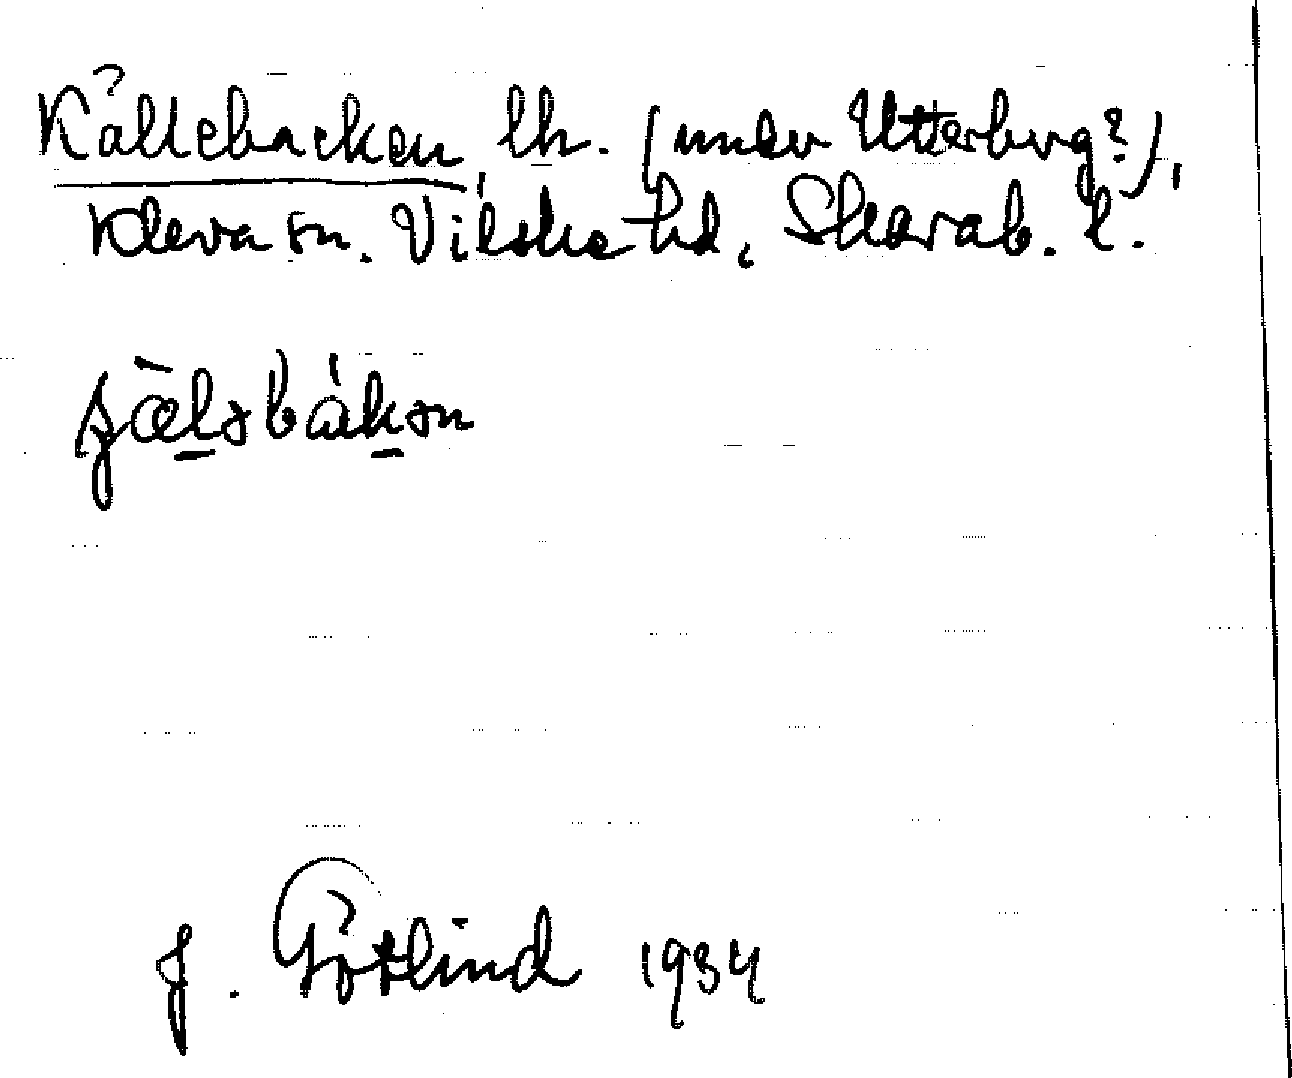 Källebacken lh. (under Utterberg?),
Kleva sn. Vilske hd, Skarab. l.
J. Götlind 1934